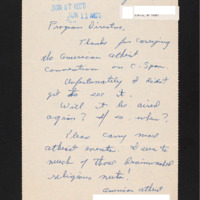 JUN 11 RECD
Program Director,
Thanks for carrying
the American atheist
Convention on C-Span
Unfortunately I didn't
get to see it.
Will it be aired
again? If so, when?
Please carry more
atheist events. I see to
much of those brainwashed
religious nuts!
American atheist